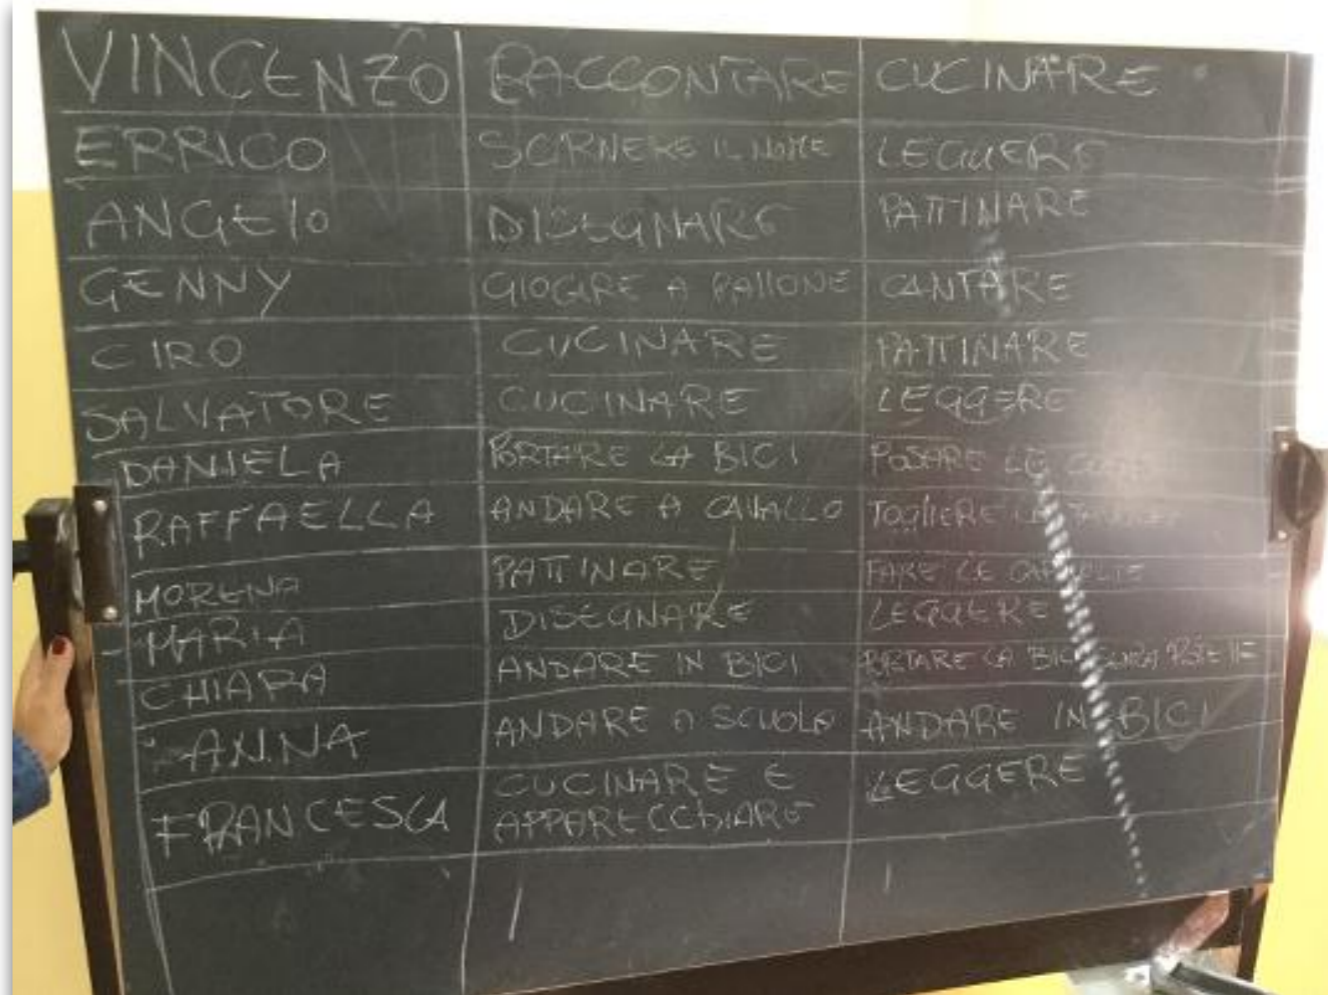 VINCENZO RACCONTARE CUCINARE
ERRICO SCRNERE IL NOME LEGGERE
ANGElO DISEGNARE PATTINARE
GENNY GIOCRE A PAllONE CANTARE
CIRO CUCINARE PATTINARE
SALVATORE CUCINARE LEGGERE
DANIELA PORTARE LA BICI POSARE LE
RAFFAELLA ANDARE A CAVALLO TOGLIERE LA
MORENA PATTINARE FARE LE
MARIA DISEGNARE LEGGERE
CHIARA ANDARE IN BICI PORTARE LA BICI
ANNA ANDARE A SCUOLA ANDARE IN BICI
FRANCESCA CUCINARE E LEGGERE
APPARECChIARE